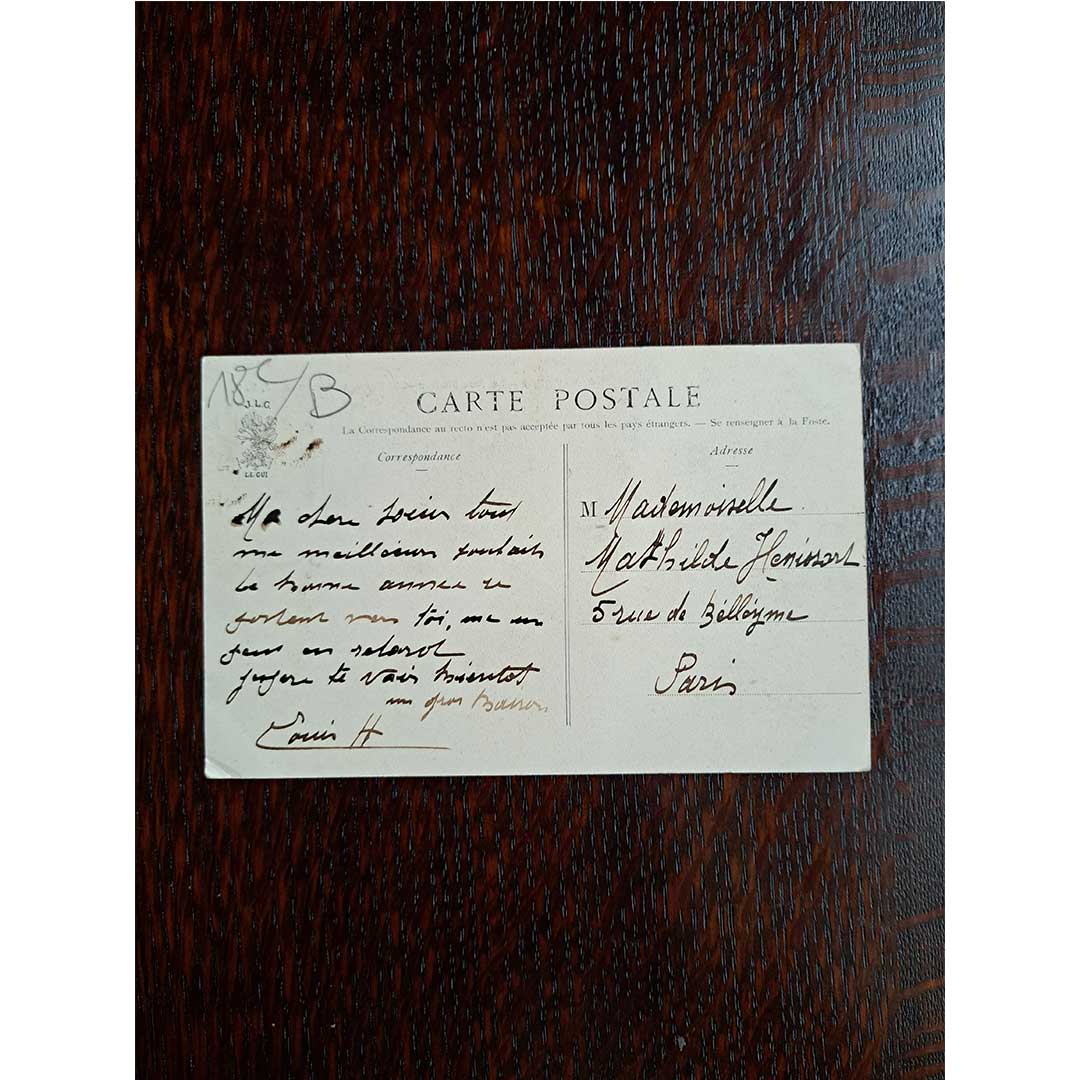 18 C/B
J.L.C.
LE GUI
CARTE POSTALE
La Correspondance au recto n'est pas acceptée par tous les pays étrangers. — Se renseigner à la Poste.
Correspondance
Ma chere soeur tout
me meilleurs souhaits
de bonne annee se
portent vers toi, me un
peux en retard
te vair bientot
un gros
Louis H
Adresse
M Mademoiselle
Mathilde
5 rue de Belleyme
Paris